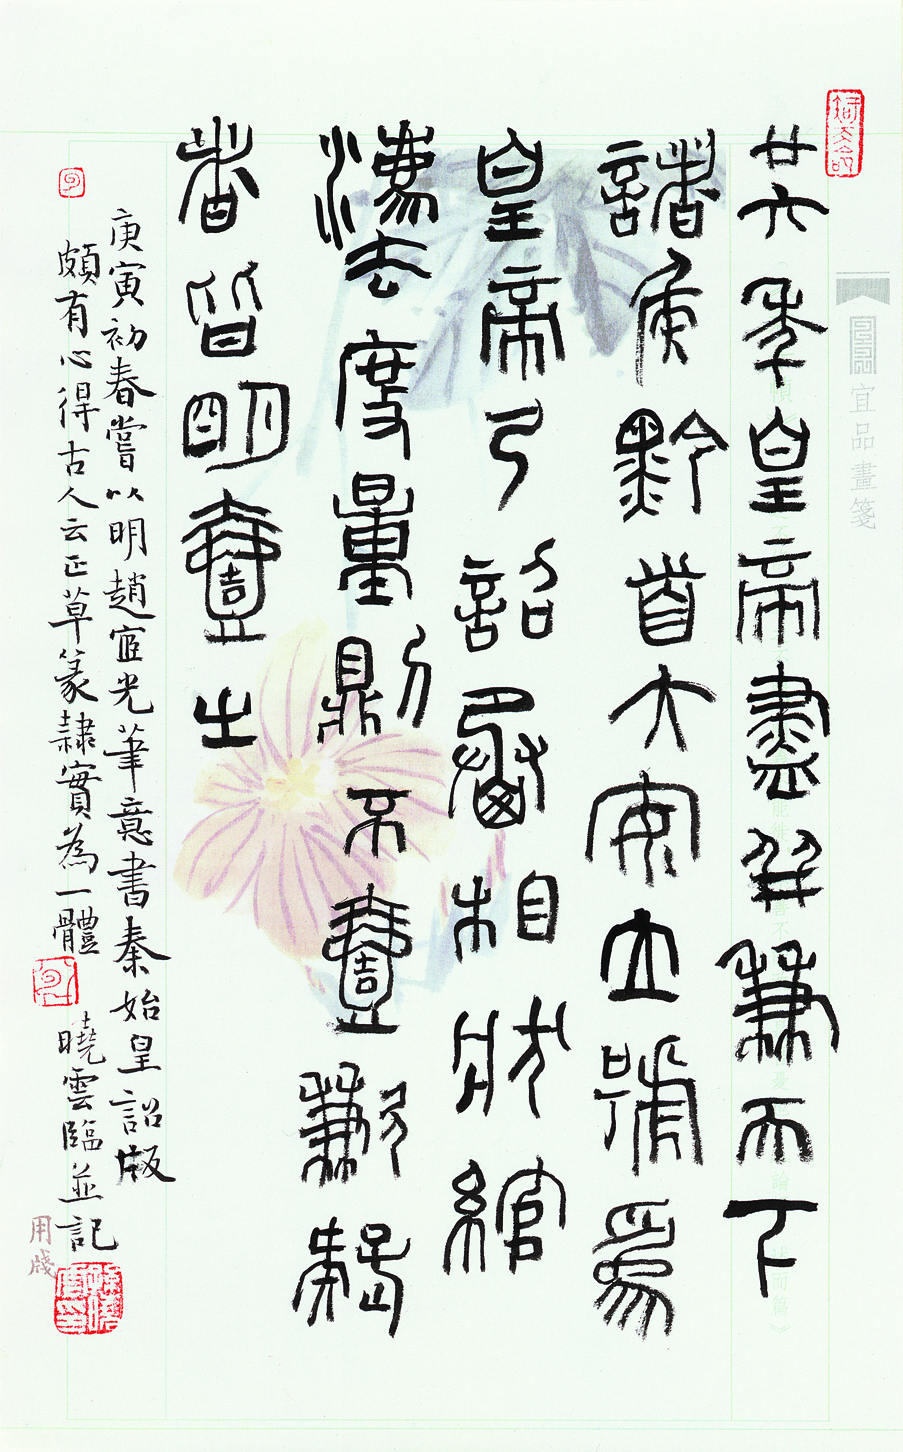 廿六年皇帝盡并兼天下
諸矦黔首大安立號為
皇帝乃詔丞相狀綰
灋法度量劓不壹歉䊷
者皆明壹之
庚寅初春嘗以明趙宧光筆意書秦始皇詔版
頗有心得古人云正草篆隸實為一體 曉雲臨並記
宜品畫箋
用牋